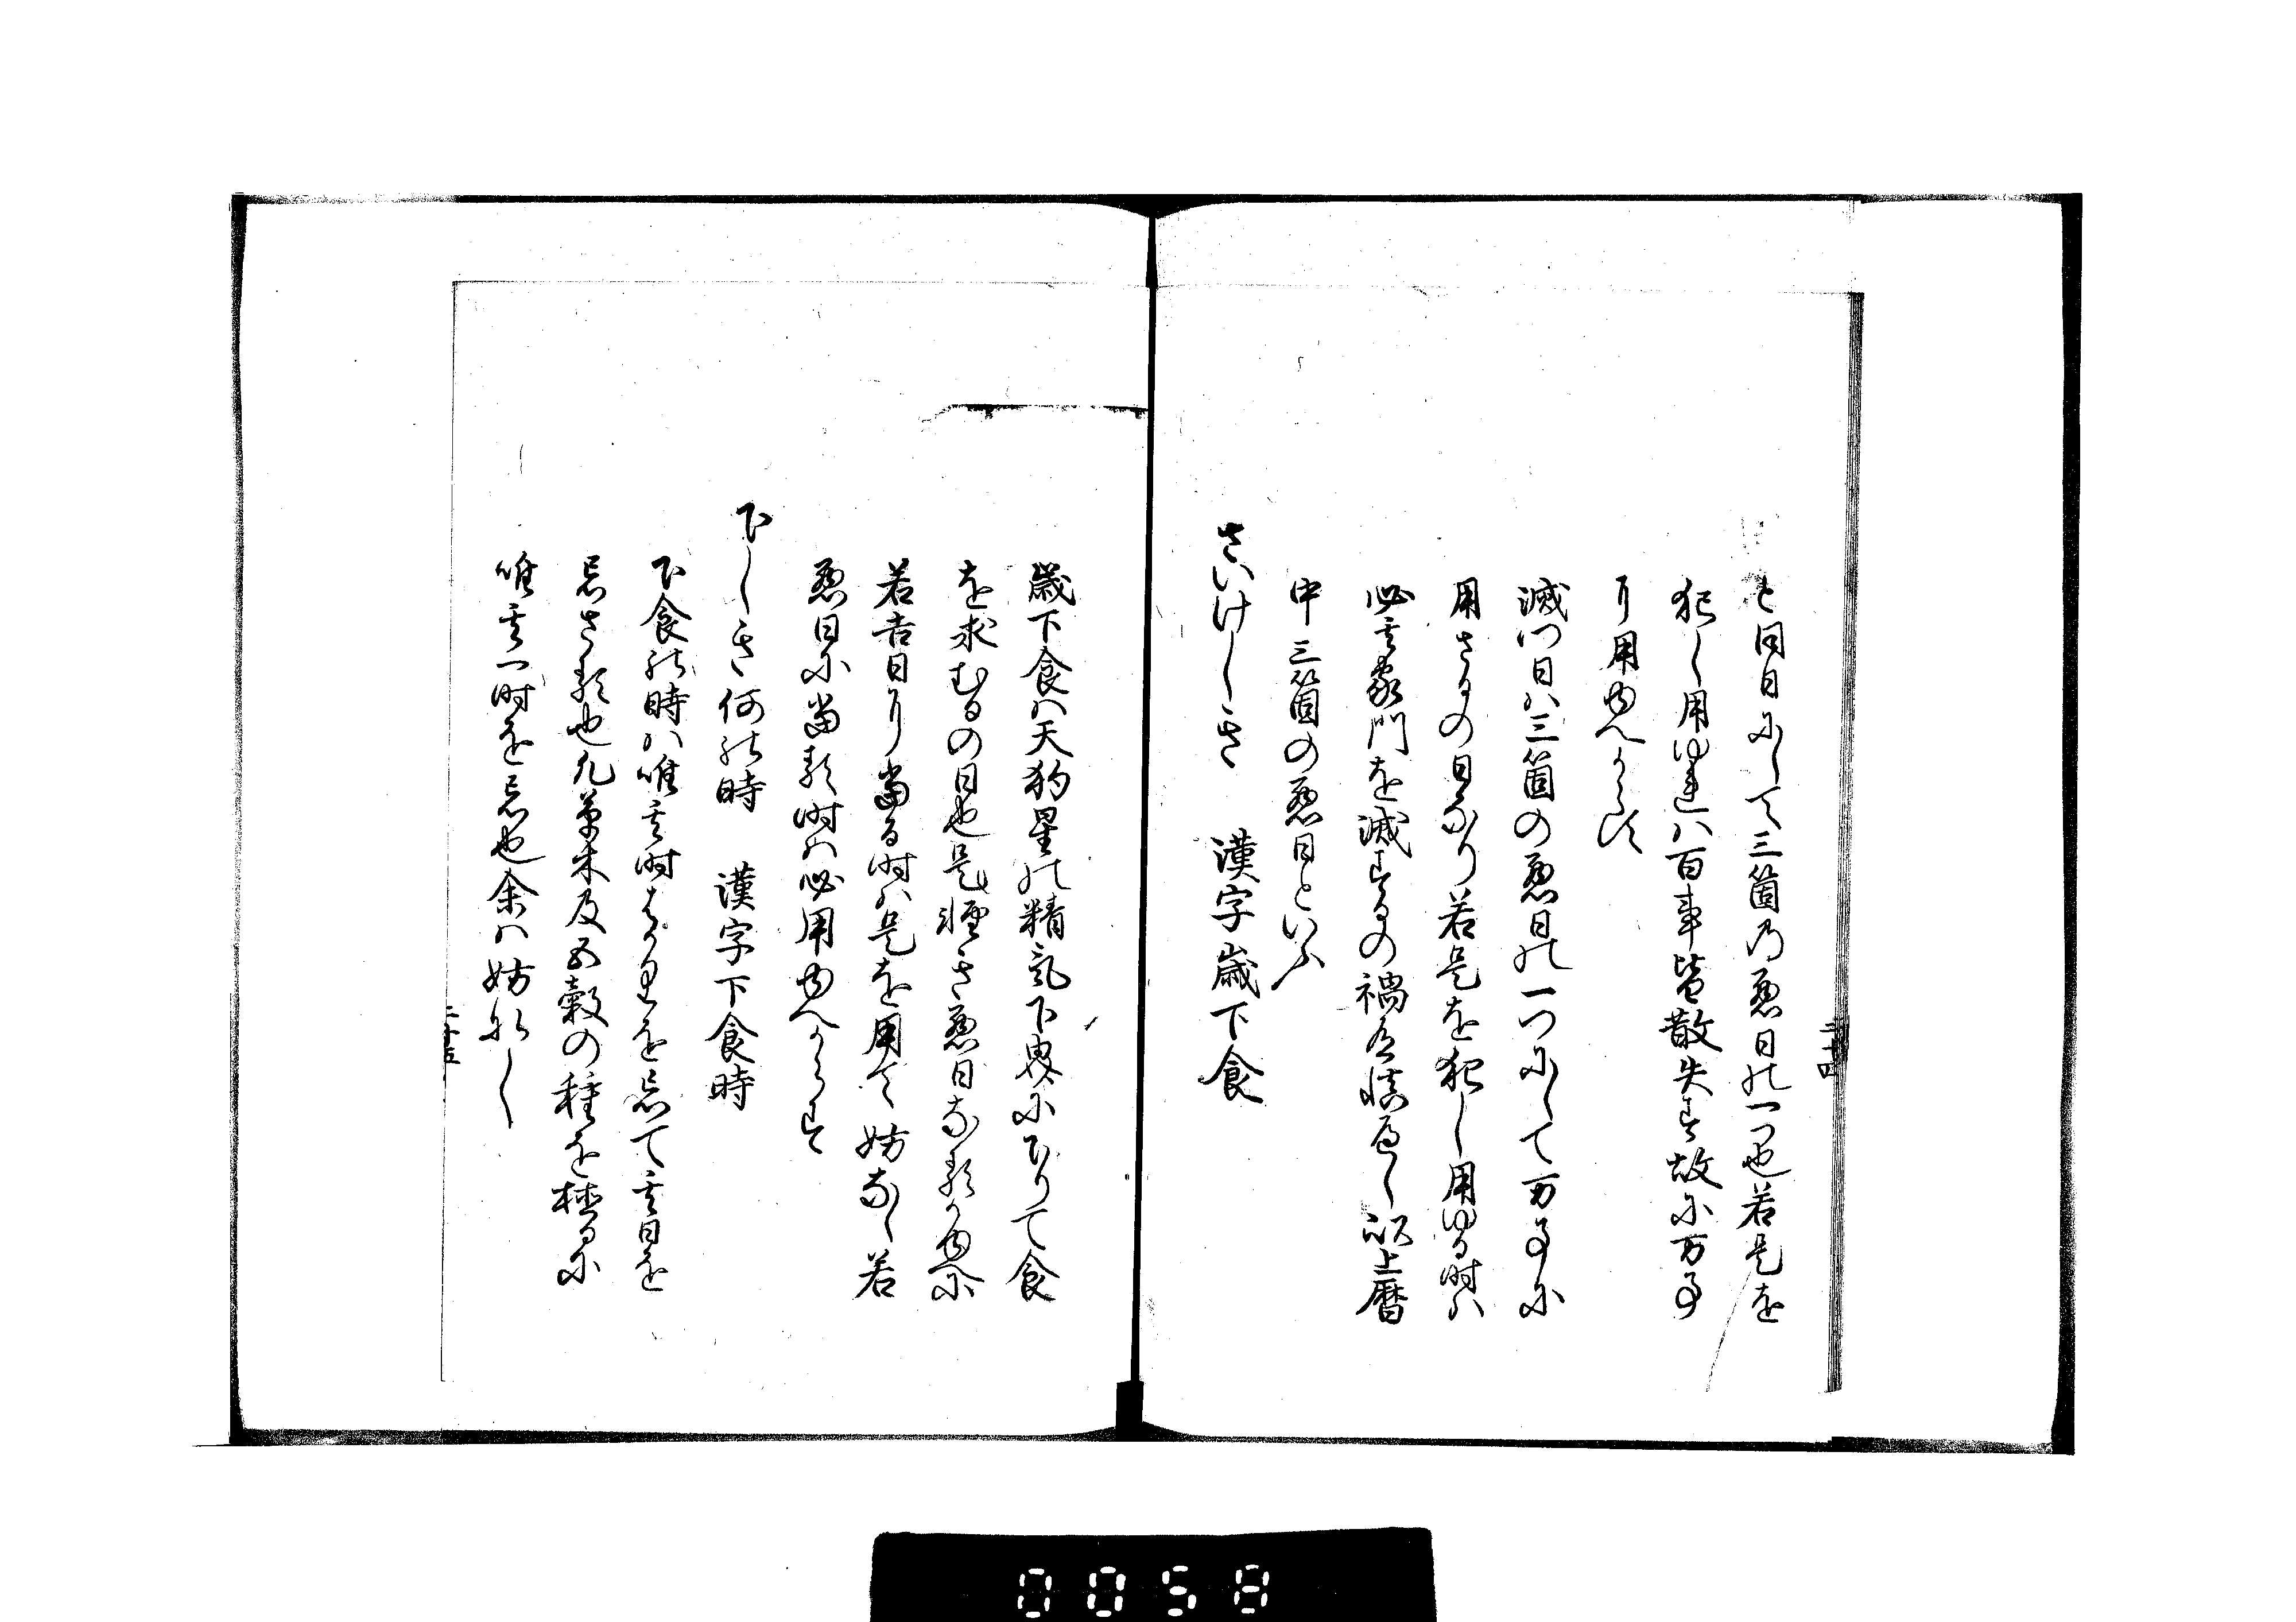 と同日にして三箇乃悪日の一つ也若是を
犯し用ゆ連ハ百事皆散失す故に万事
り用ゆへからす
滅門日ハ三箇の悪日の一つにして万事に
用さるの日なり若是を犯し用ゆる時ハ
必其家門を滅するの禍有慎へし以上暦
中三箇の悪日といふ
さいけしき 漢字歳下食
歳下食ハ天狗星の精気下界に下りて食
を求むるの日也是軽き悪日なるか為に
若吉日り当る時ハ是を用て妨なし若
悪日に当る時ハ必用ゆへからす
下しき何の時 漢字下食時
下食の時ハ唯其時はかりを忌て其日を
忌さる也凡草木及五穀の種を植るに
唯其一時を忌也余ハ妨なし
三十四
三十五
0058